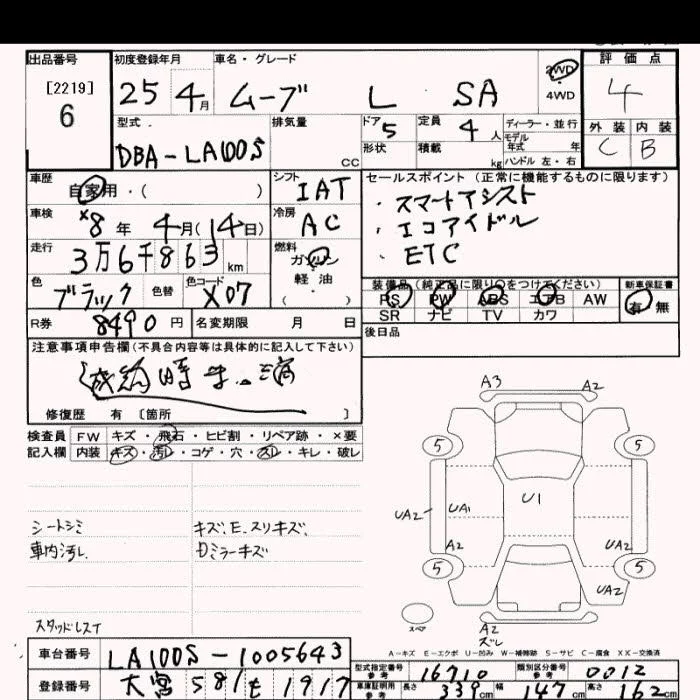 出品番号 初度登録年月 車名・グレード 評価点
[2219] 6 25 4月 ムーブ L SA 2WD 4WD 4
型式 排気量 ドア 定員 ディーラー・並行 外装 内装
DBA-LA100S CC 5 4人 モデル年式 年 C B
形状 積載 kg ハンドル 左・右
車歴 シフト セールスポイント (正常に機能するものに限ります)
自家用・( ) IAT ・スマートアシスト
車検 冷房 ・エコアイドル
×8年 4月(14日) AC ・ETC
走行 燃料
3万6千863km ガソリン
軽油
( )
色 色替 色コード 装備品(純正品に限り○をつけてください) 新車保証書
ブラック X07 PS PW ABS エアB AW 有 無
SR ナビ TV カワ
R券 8490円 名変期限 月 日 後日品
注意事項申告欄(不具合内容等は具体的に記入して下さい)
修復歴 有 〔箇所 〕
検査員 FW キズ・飛石・ヒビ割・リペア跡・×要
記入欄 内装 キズ・汚レ・コゲ・穴・スレ・キレ・破レ
シートシミ キズ、E、スリキズ、
車内汚レ Dミラーキズ
スタッドレス1
A3 A2
5 5
UA2 UA1 U1
A2 UA2
5 5
UA2
スペア A2
ズレ
A-キズ E-エクボ U-凹み W-補修跡 S-サビ C-腐食 XX-交換済
車台番号 LA100S-1005643
型式指定番号 参考 16710 類別区分番号 参考 0012
登録番号 大宮 581 せ 1917
車庫証明用 参考 長さ 339cm 幅 147cm 高さ 162cm